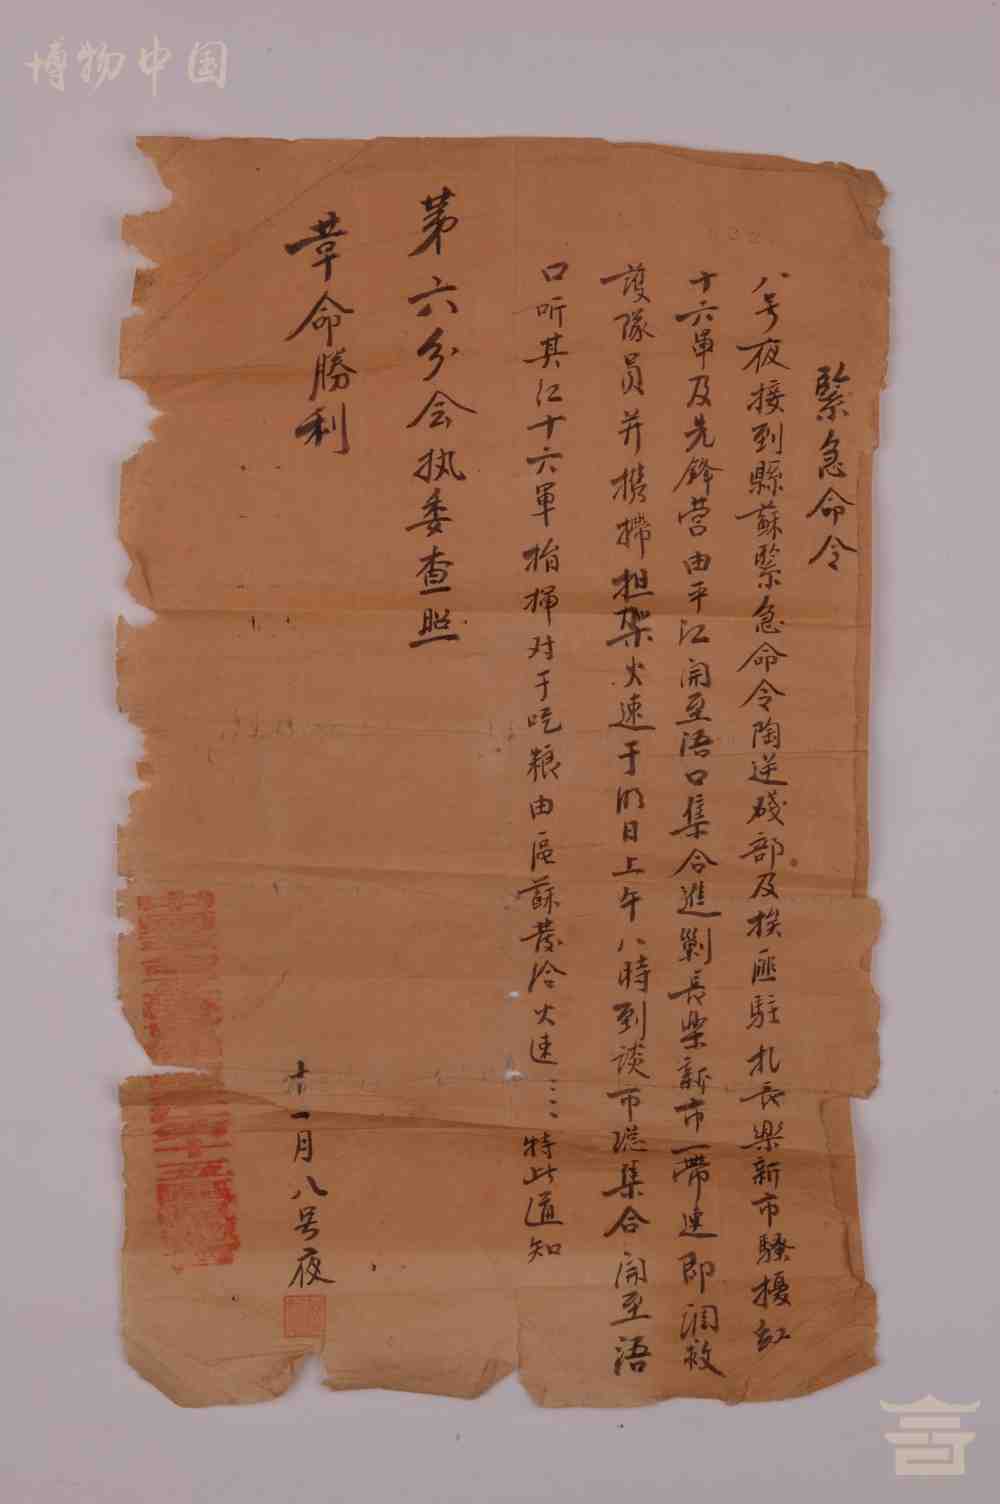 博物中国
緊急命令
八号夜接到縣蘇緊急命令陶逆部及挨匪駐扎長樂新市騷擾紅
十六軍及先鋒营由平江開至浯口集合進剿長樂新市一帶速即調救
護隊員并携担架火速于明日上午八時到談市集合開至浯
口听其红十六軍指揮对于吃粮由區蘇發给火速……特此通知
第六分会执委查照
革命勝利
十一月八号夜